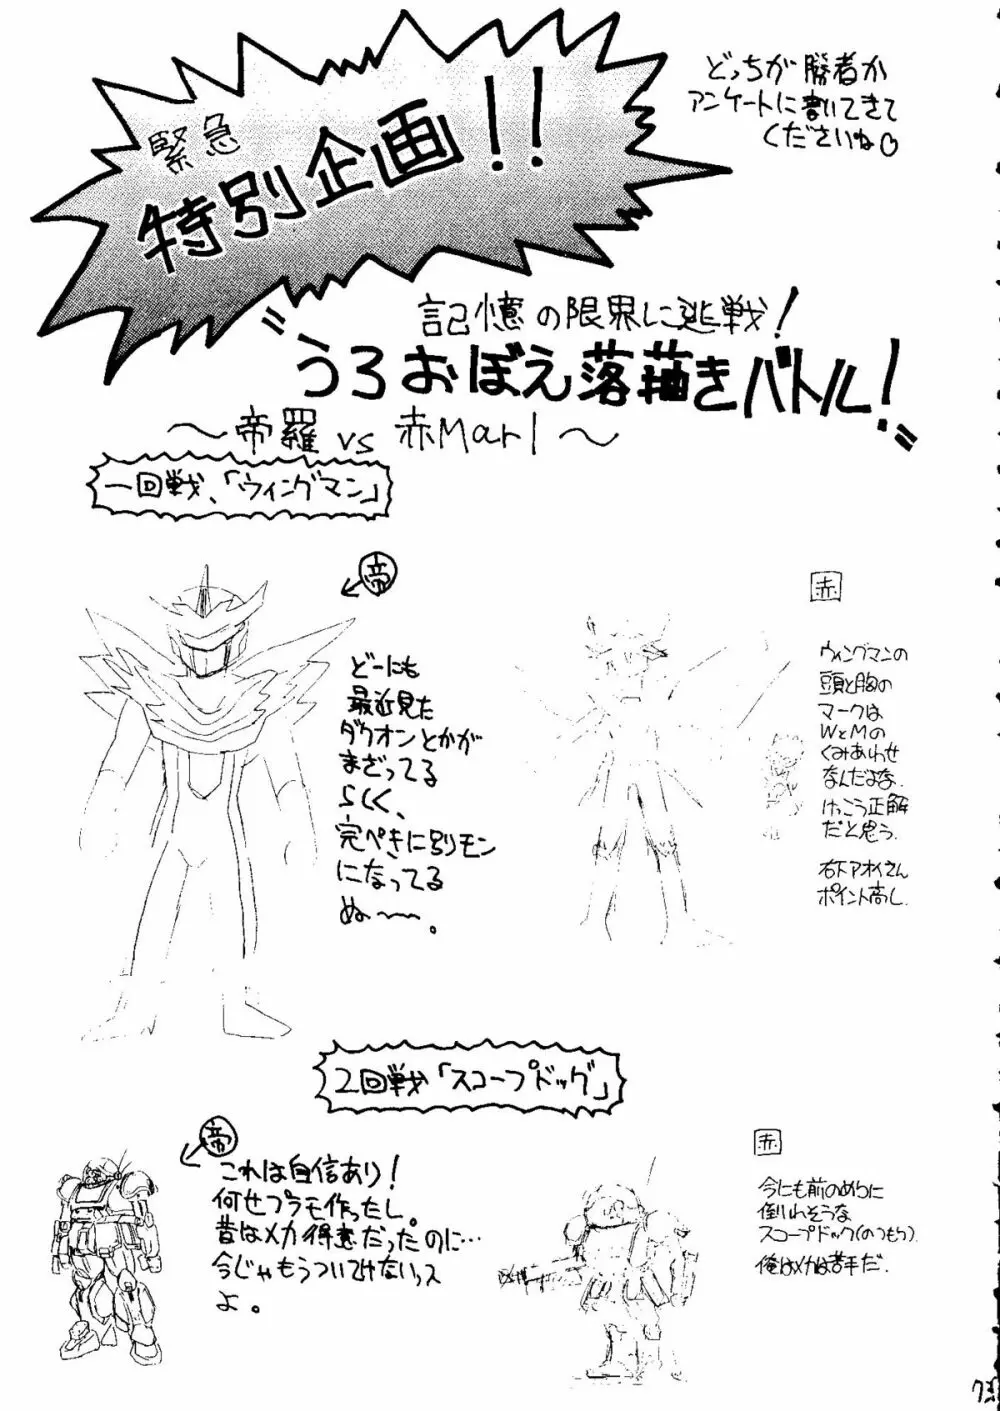 緊急
特別企画!!
どっちが勝者か
アンケートに書いてきて
くださいね♡
記憶の限界に挑戦!
"うろおぼえ落描きバトル!"
～帝羅vs赤Marl～
一回戦、「ウィングマン」
帝
どーにも
最近見た
ダグオンとかが
まざってる
らしく、
完ぺきに別モン
になってる
ぬ〜〜。
赤
ウィングマンの
頭と胸の
マークは
WとMの
くみあわせ
なんだよな。
けっこう正解
だと思う。
右下アオイさん
ポイント高し.
2回戦「スコープドッグ」
帝
これは自信あり!
何せプラモ作ったし。
昔はメカ得意だったのに…
今じゃもうついてけないっス
よ。
赤
今にも前のめりに
倒れそうな
スコープドック(のつもり).
俺はメカは苦手だ.
73